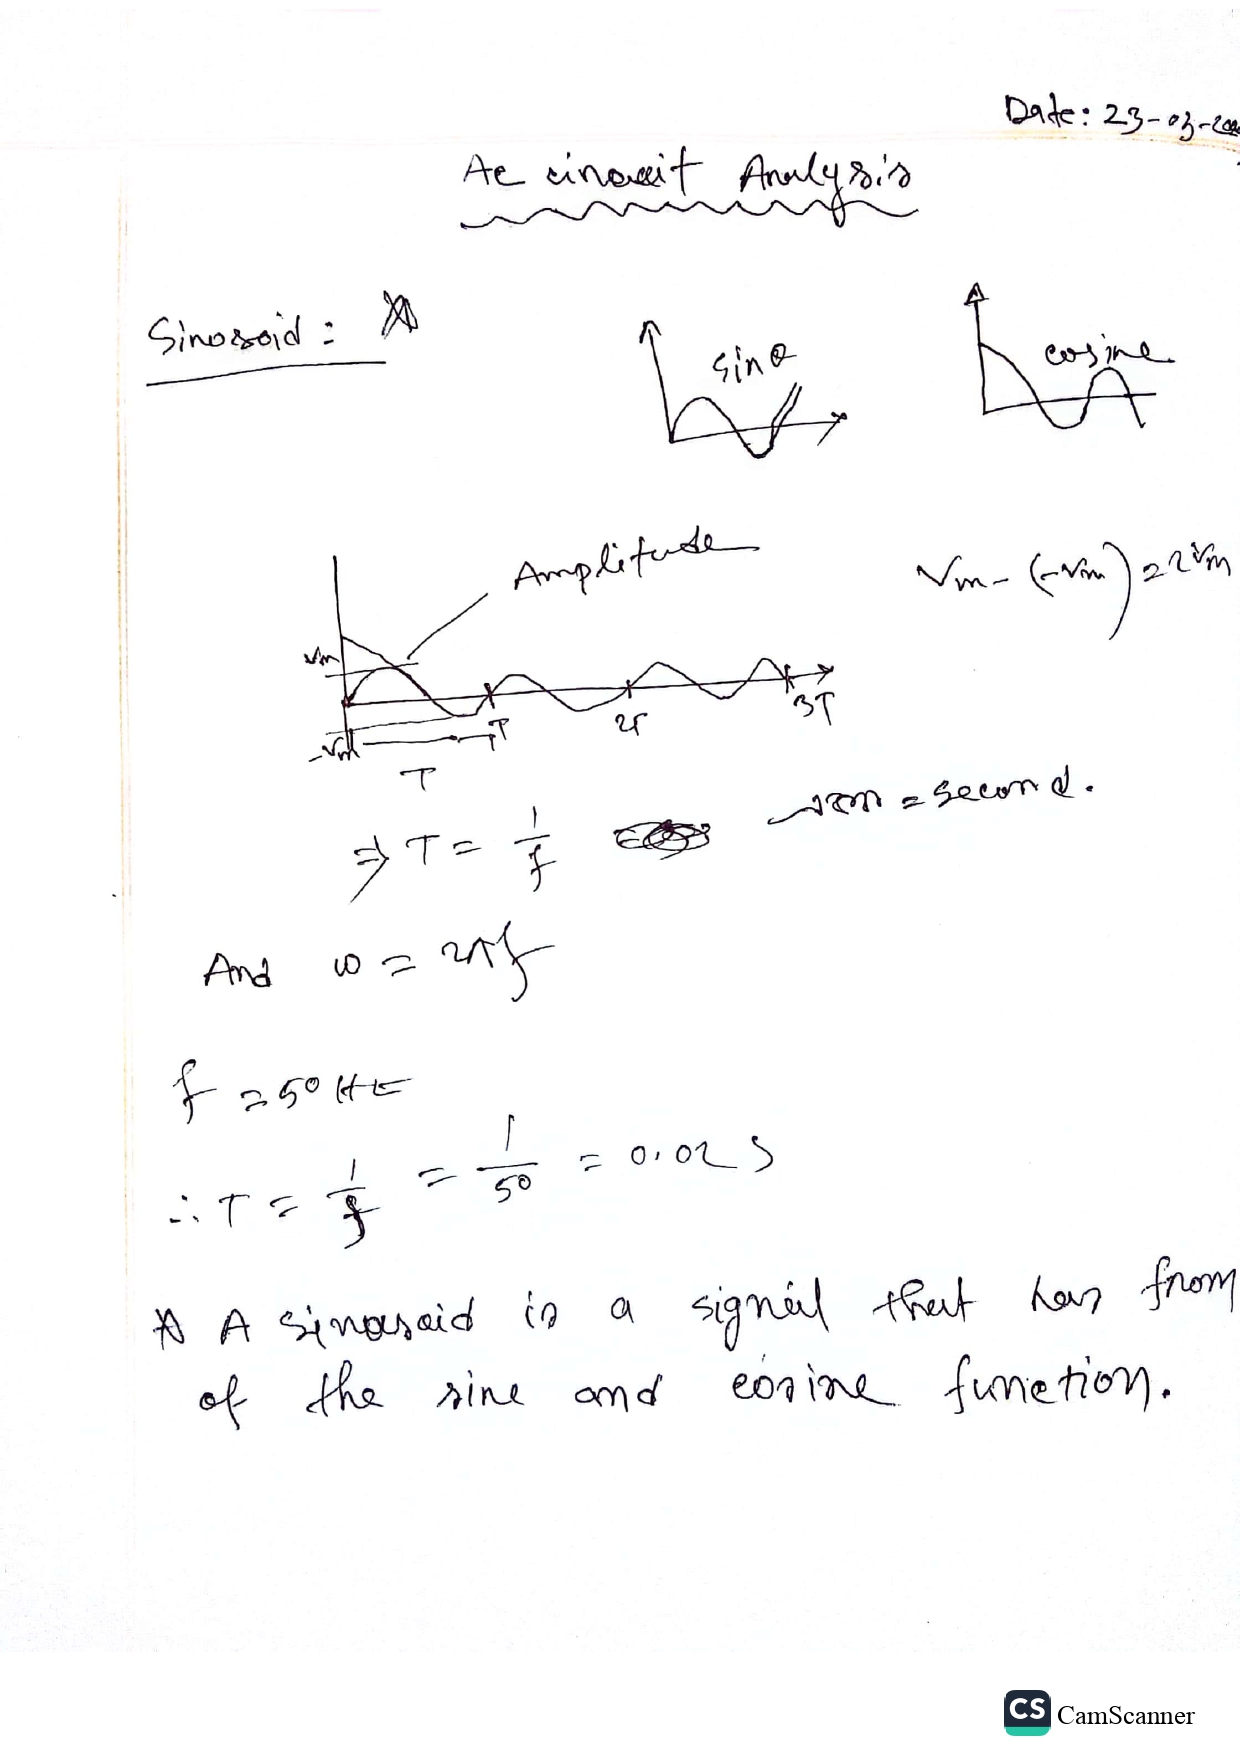 Date: 23-03-20
Ac circuit Analysis
Sinosoid:
sin θ
cosine
Amplitude
Vm - (-Vm) = 2Vm
Vm
-Vm
T
2T
3T
T
⇒ T = 1/f
= second.
And ω = 2πf
f = 50 Hz
∴ T = 1/f = 1/50 = 0.02 s
A sinosoid is a signal that has from
of the sine and cosine function.
CS CamScanner